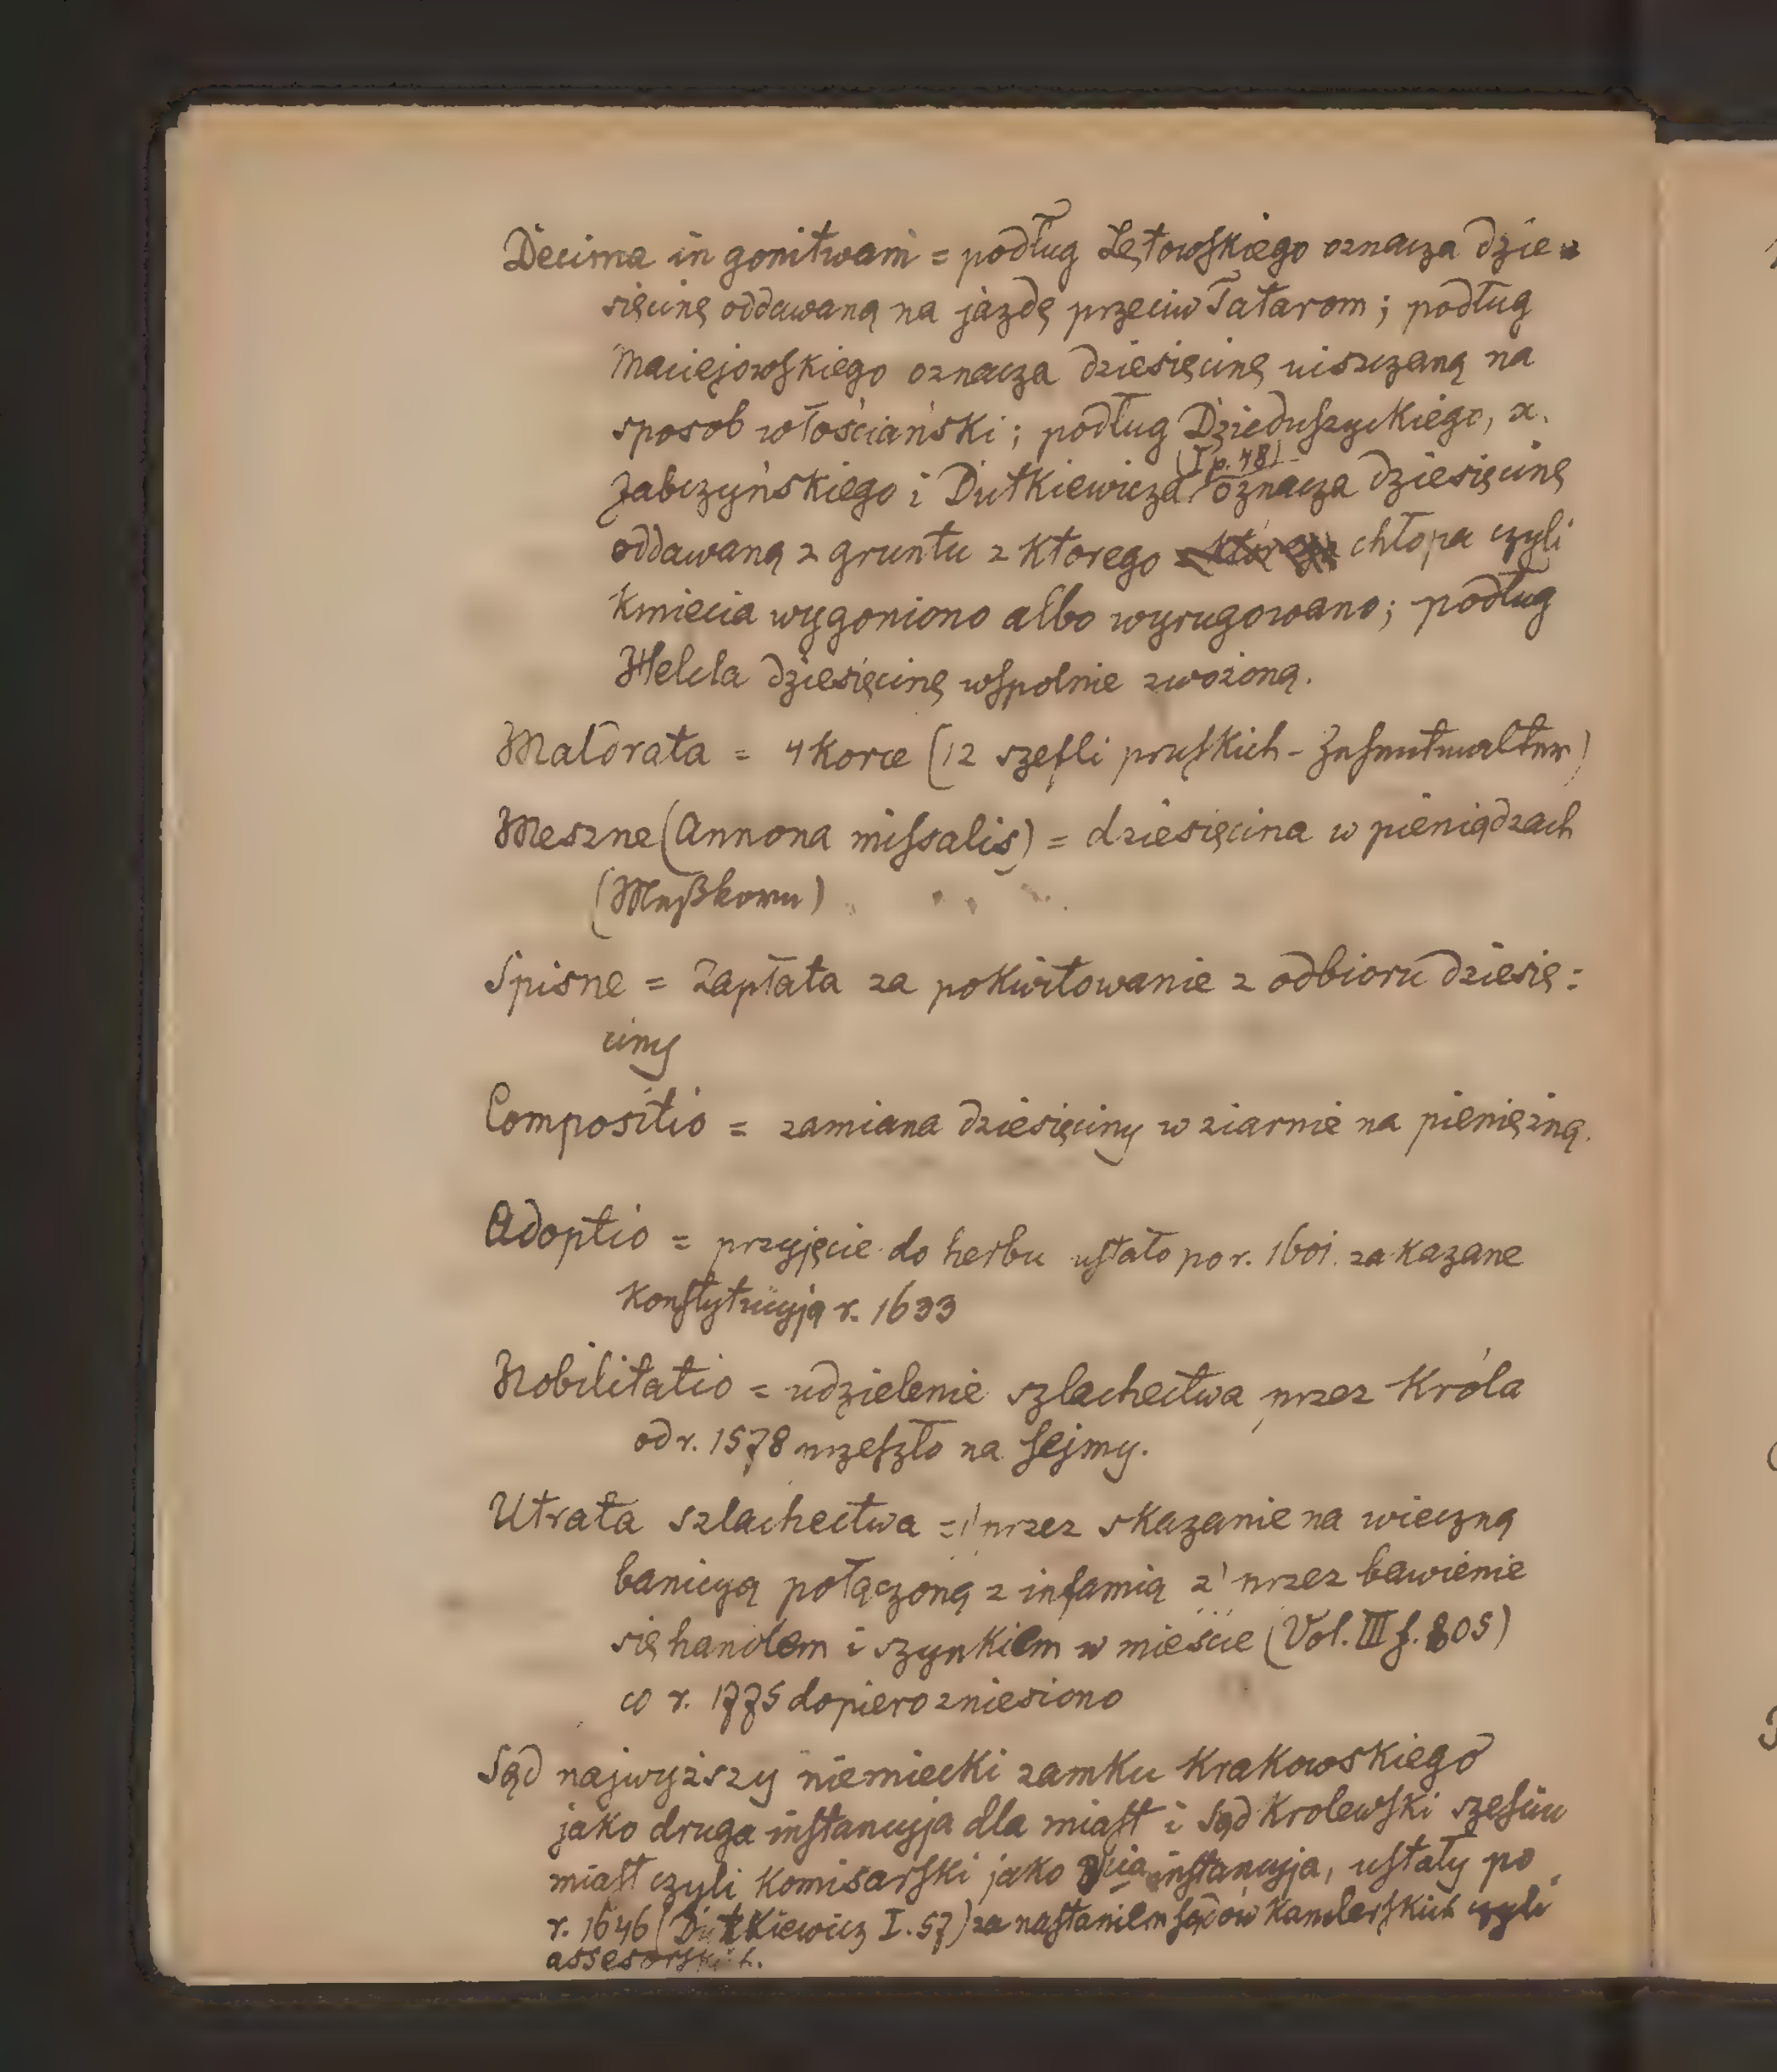 Decima in gonitwam = podług Łętowskiego oznacza dzie-
sięcinę oddawaną na jazdę przeciw Tatarom; podług
Maciejowskiego oznacza dziesięcinę uiszczaną na
sposob włościański; podług Dzieduszyckiego, x.
(I p. 48)
Zabczyńskiego i Dutkiewicza oznacza dziesięcinę
oddawaną z gruntu z ktorego chłopa czyli
Kmiecia wygoniono albo wyrugowano; podług
Helcla dziesięcinę wspolnie zwożoną.
Maldrata = 4 Korce (12 szefli pruskich -
Meszne (Annona missalis) = dziesięcina w pieniądzach
(Meßkorn)
Spisne = Zapłata za pokwitowanie z odbioru dziesię:
ciny
Compositio = zamiana dziesięciny w ziarnie na pieniężną.
Adoptio = przyjęcie do herbu ustało po r. 1601. zakazane
Konstytucyją r. 1633
Nobilitatio = udzielenie szlachectwa przez Króla
od r. 1578 przeszło na sejmy.
Utrata szlachectwa = 1 przez skazanie na wieczną
banicyą połączoną z infamią 2 przez bawienie
się handlem i szynkiem w mieście (Vol. III f. 805)
co r. 1775 dopiero zniesiono
Sąd najwyższy niemiecki zamku Krakowskiego
jako druga instancyja dla miast i Sąd Krolewski sześciu
miast czyli Komisarski jako 3cia instancyja, ustały po
r. 1646 (Dutkiewicz I. 57) za nastaniem sądów Kanclerskich czyli
assesorskich.